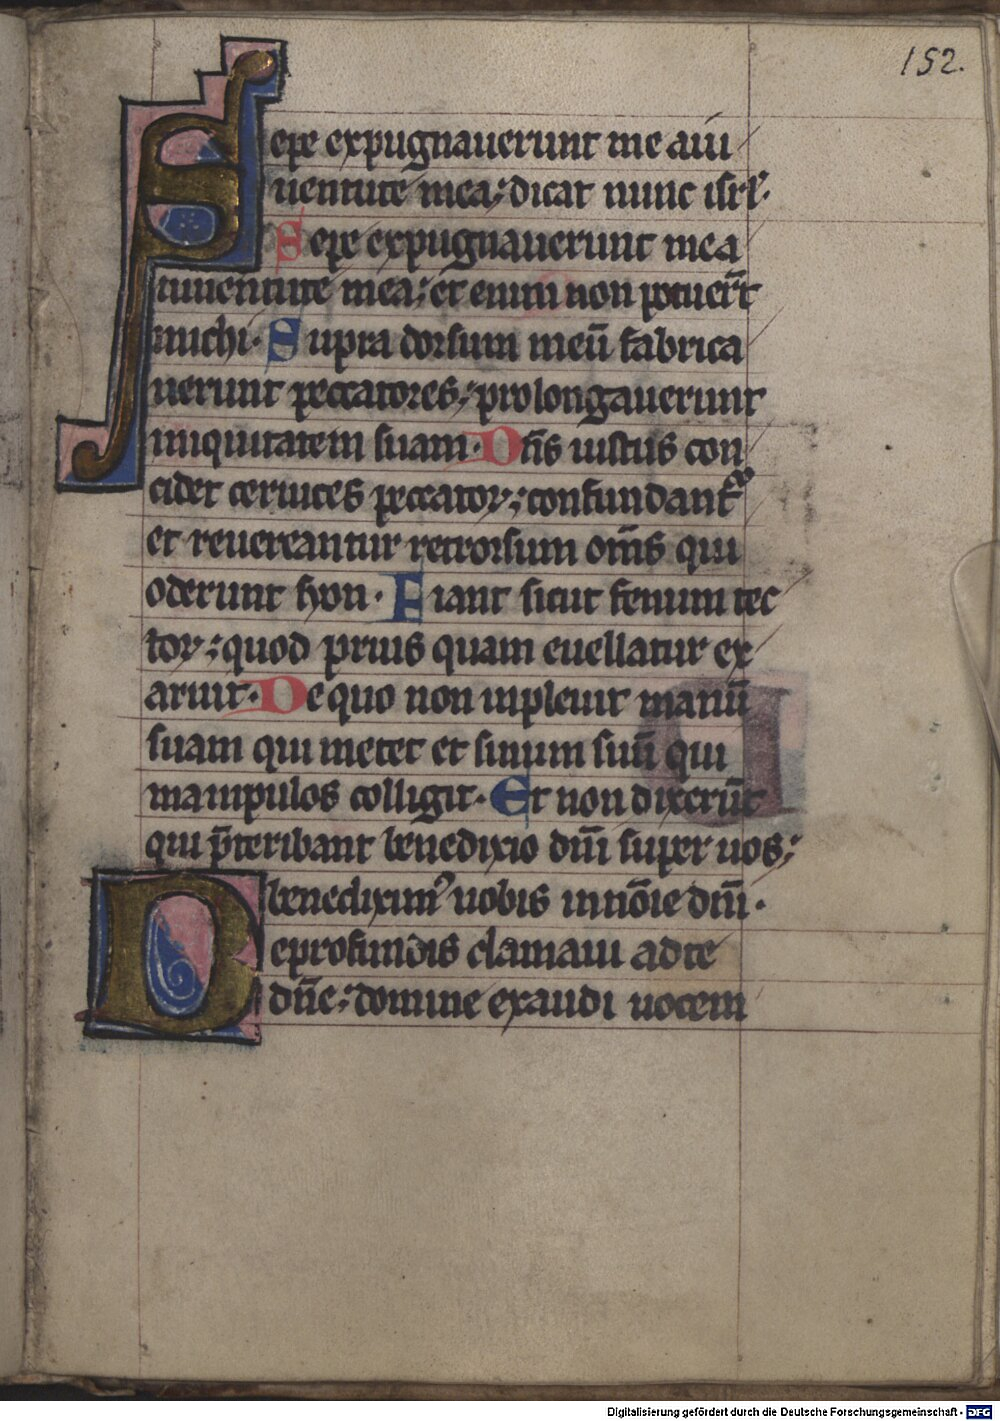 152.
Sepe expugnauerunt me a iu
uentute mea; dicat nunc isrl̕.
Sepe expugnauerunt me a
iuuentute mea; et enim non potuer̄t
michi. Supra dorsum meū fabrica
uerunt peccatores; prolongauerunt
iniquitatem suam. Dn̄s iustus con
cidet ceruices peccatoꝝ; confundantᷣ
et reuereantur retrorsum om̄s qui
oderunt syon. Fiant sicut fenum tec
toꝝ; quod prius quam euellatur ex
aruit. De quo non inpleuit manū
suam qui metet et sinum suū qui
manipulos colligit. Et non dixerūt
qui p̄teribant benedixio dn̄i super uos;
benediximꝰ uobis in nōie dn̄i.
De profundis clamaui ad te
dn̄e; domine exaudi uocem
Digitalisierung gefördert durch die Deutsche Forschungsgemeinschaft - DFG